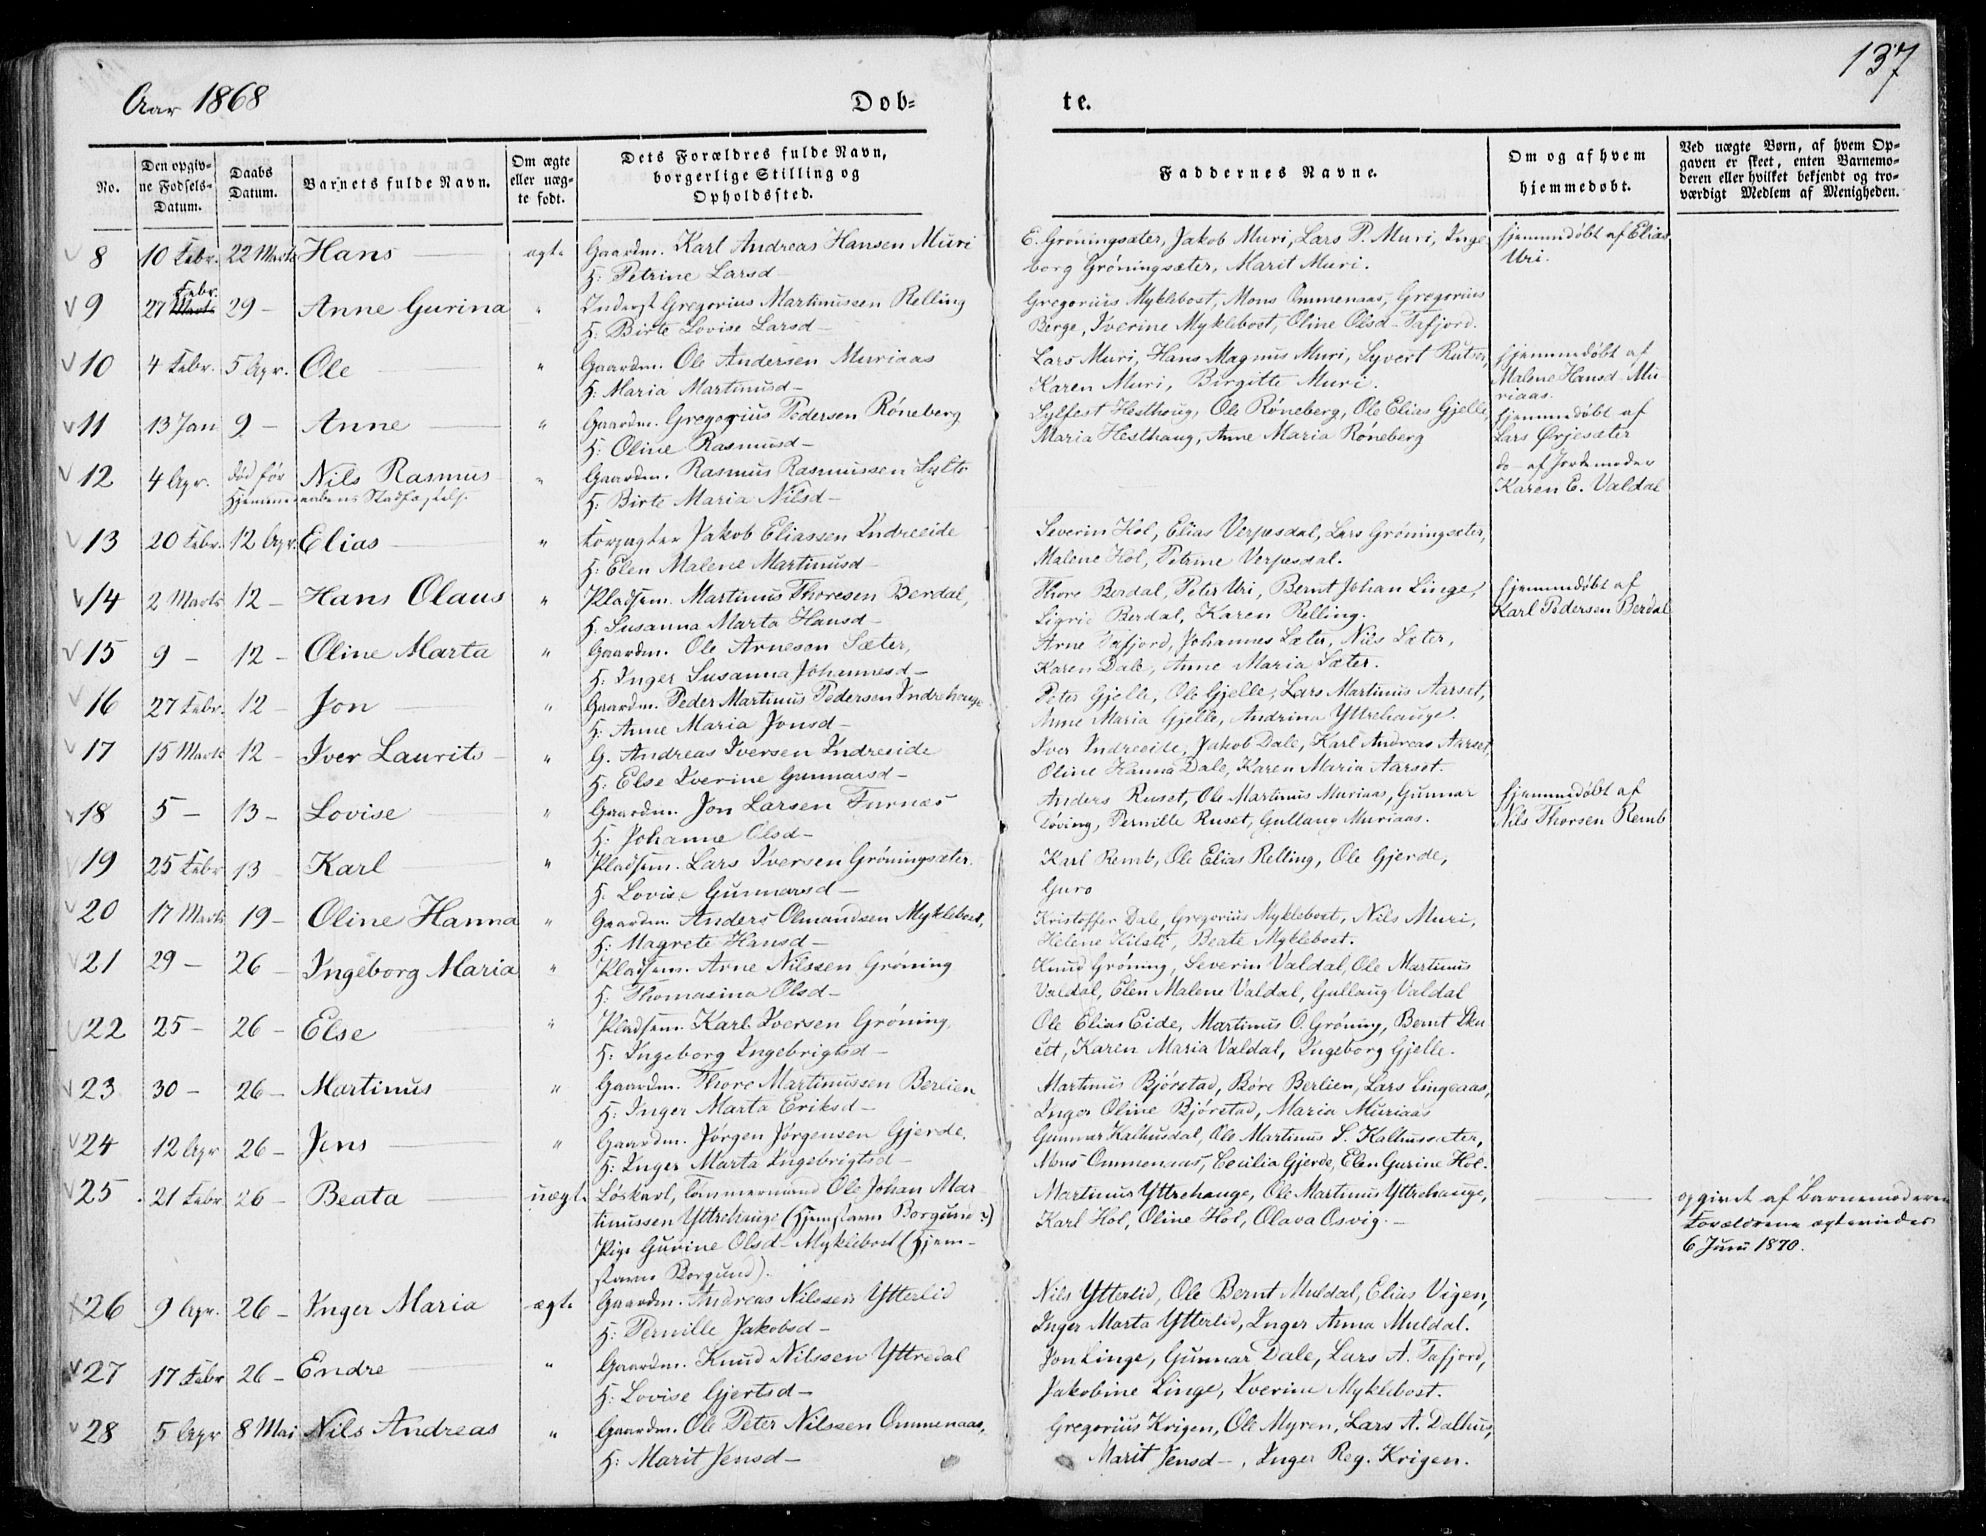 137
Aar 1868 Døb= te.
No. Den opgiv= ne Fødsels= Datum. Daabs Datum. Barnets fulde Navn. Om ægte eller uæg= te født. Dets Forældres fulde Navn, borgerlige Stilling og Opholdssted. Faddernes Navne. Om og af hvem hjemmedøbt. Ved uægte Børn, af hvem Op= gaven er skeet, enten Barnemo= deren eller hvilket bekjendt og tro= værdigt Medlem af Menigheden.
8 10 Febr. 22 Marts Hans ægte Gaardm. Karl Andreas Hansen Muri E. Gröningsæter, Jakob Muri, Lars P. Muri, Inge hjemmedöbt af Elias
H: Petrine Larsd – borg Gröningsæter, Marit Muri. Uri.
9 27 Febr. Marts 29 – Anne Gurina " Inderst Gregorius Martinussen Relling Gregorius Myklebost, Mons Ommenaas, Gregorius
H: Birte Lovise Larsd – Berge, Iverine Myklebost, Oline Olsd – Tafjord.
10 4 Febr. 5 Apr. Ole " Gaardm. Ole Andersen Muriaas Lars Muri, Hans Magnus Muri, Syvert Rutset, hjemmedöbt af
H: Maria Martinusd – Karen Muri, Birgitte Muri. Malene Hansd – Mu-
riaas.
11 13 Jan 9 – Anne " Gaardm. Gregorius Pedersen Röneberg Sylfest Hesthaug, Ole Röneberg, Ole Elias Gjelle hjemmedöbt af
H: Oline Rasmusd – Maria Hesthaug, Anne Maria Röneberg Lars Ørjesæter
12 4 Apr. död för Nils Rasmus " Gaardm. Rasmus Rasmussen Sylte do – af Jordemoder
Hjemmedaabens Stadfæstelse H: Birte Maria Nilsd – Karen E. Valdal
13 20 Febr. 12 Apr. Elias " Forpagter Jakob Eliassen Indreeide Severin Hol, Elias Verpesdal, Lars Gröningsæter,
H: Elen Malene Martinusd – Malene Hol, Petrine Verpesdal.
14 2 Marts 12 – Hans Olaus " Pladsm. Martinus Thoresen Berdal, Thore Berdal, Peter Uri, Bernt Johan Linge, hjemmedöbt af
H: Susanna Marta Hansd – Sigrie Berdal, Karen Relling. Karl Pedersen Berdal
15 9 – 12 – Oline Marta " Gaardm. Ole Arneson Sæter, Arne Tafjord, Johannes Sæter, Nils Sæter,
H: Inger Susanna Johannesd – Karen Dale, Anne Maria Sæter.
16 27 Febr. 12 – Jon " Gaardm. Peder Martinus Pedersen Indrehauge Peter Gjelle, Ole Gjelle, Lars Martinus Aarset,
H: Anne Maria Jonsd – Anne Maria Gjelle, Andrina Yttrehauge.
17 15 Marts 12 – Iver Laurits " G. Andreas Iversen Indreeide Iver Indreeide, Jakob Dale, Karl Andreas Aarset,
H: Else Iverine Gunnarsd – Oline Hanna Dale, Karen Maria Aarset.
18 5 – 13 – Lovise " Gaardm. Jon Larsen Furnæs Anders Ruset, Ole Martinus Muriaas, Gunnar hjemmedöbt af
H: Johanne Olsd – Döving, Pernille Ruset, Gullaug Muriaas. Nils Thorsen Remb
19 25 Febr 13 – Karl " Pladsm. Lars Iversen Gröningsæter. Karl Remb, Ole Elias Relling, Ole Gjerde,
H: Lovise Gunnarsd – Guro
20 17 Marts 19 – Oline Hanna " Gaardm. Anders Olmandsen Myklebost, Kristoffer Dale, Gregorius Myklebost, Nils Muri,
H: Magrete Hansd – Helene Kilsti, Beate Myklebost.
21 29 – 26 – Ingeborg Maria " Pladsm. Arne Nilssen Gröning Knud Gröning, Severin Valdal, Ole Martinus
H: Thomasina Olsd – Valdal, Elen Malene Valdal, Gullaug Valdal
22 25 – 26 – Else " Pladsm. Karl Iversen Gröning. Ole Elias Eide, Martinus O. Gröning, Bernt Sku
H: Ingeborg Ingebrigtsd – set, Karen Maria Valdal, Ingeborg Gjelle.
23 30 – 26 – Martinus " Gaardm. Thore Martinussen Berlien Martinus Björstad, Böre Berlien, Lars Lingeaas,
H: Inger Marta Eriksd – Inger Oline Björstad, Maria Muriaas
24 12 Apr 26 – Jens " Gaardm. Jørgen Jørgensen Gjerde, Gunnar Kalhusdal, Ole Martinus S. Kalhussæter,
H: Inger Marta Ingebrigtsd – Mons Ommenaas, Cecilia Gjerde, Elen Gurine Hol.
25 21 Febr 26 – Beata uægte Löskarl, tömmermand Ole Johan Mar Martinus Yttrehauge, Ole Martinus Yttrehauge, opgivet af Barnemoderen
tinussen Yttrehauge (Hjemstavn Borgund?) Karl Hol, Oline Hol, Olava Osvig. – Forældrene ægteviede
Pige Gurine Olsd – Myklebost (Hjem- 6 Juni 1870.
stavn Borgund).
26 9 Apr. 26 – Inger Maria ægte Gaardm. Andreas Nilssen Ytterlid Nils Ytterlid, Ole Bernt Muldal, Elias Vigen,
H: Pernille Jakobsd – Inger Marta Ytterlid, Inger Anna Muldal.
27 17 Febr 26 – Endre " Gaardm. Knud Nilssen Yttredal Jon Linge, Gunnar Dale, Lars A. Tafjord,
H: Lovise Gjertsd – Jakobine Linge, Iverine Myklebost.
28 5 Apr 8 Mai Nils Andreas " Gaardm. Ole Peter Nilssen Ommenaas, Gregorius Krigen, Ole Myren, Lars A. Dalhus,
H: Marit Jensd – Marit Jensd –, Inger Reg. Krigen.